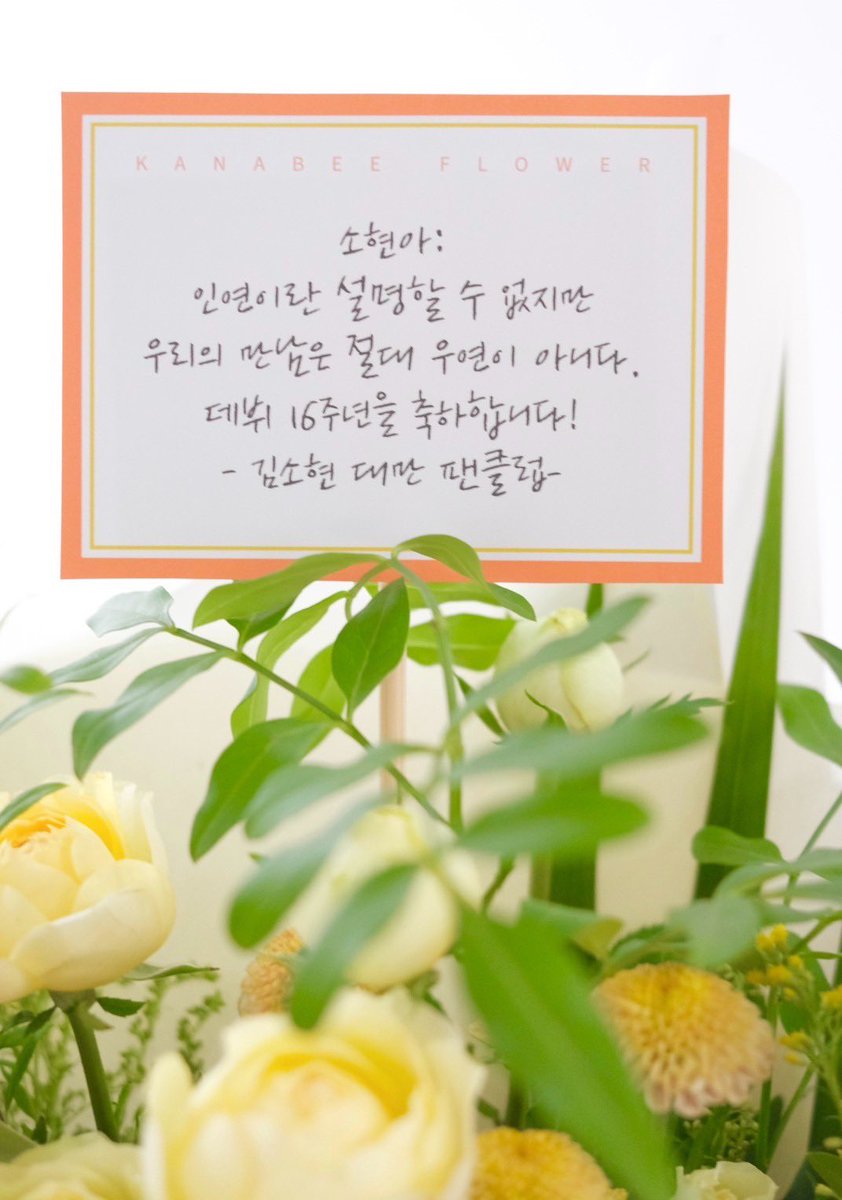 KANABEE FLOWER
소현아:
인연이란 설명할 수 없지만
우리의 만남은 절대 우연이 아니다.
데뷔 16주년을 축하합니다!
- 김소현 대만 팬클럽-